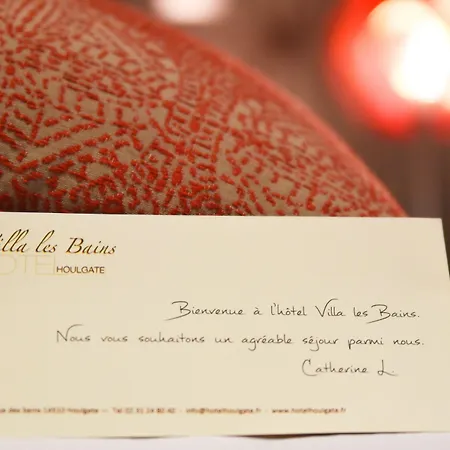 Villa les Bains
HOTEL HOULGATE
Bienvenue à l'hôtel Villa les Bains.
Nous vous souhaitons un agréable séjour parmi nous.
Catherine L.
des bains 14510 Houlgate — Tel 02 31 24 80 40 - info@hotelhoulgate.fr - www.hotelhoulgate.fr